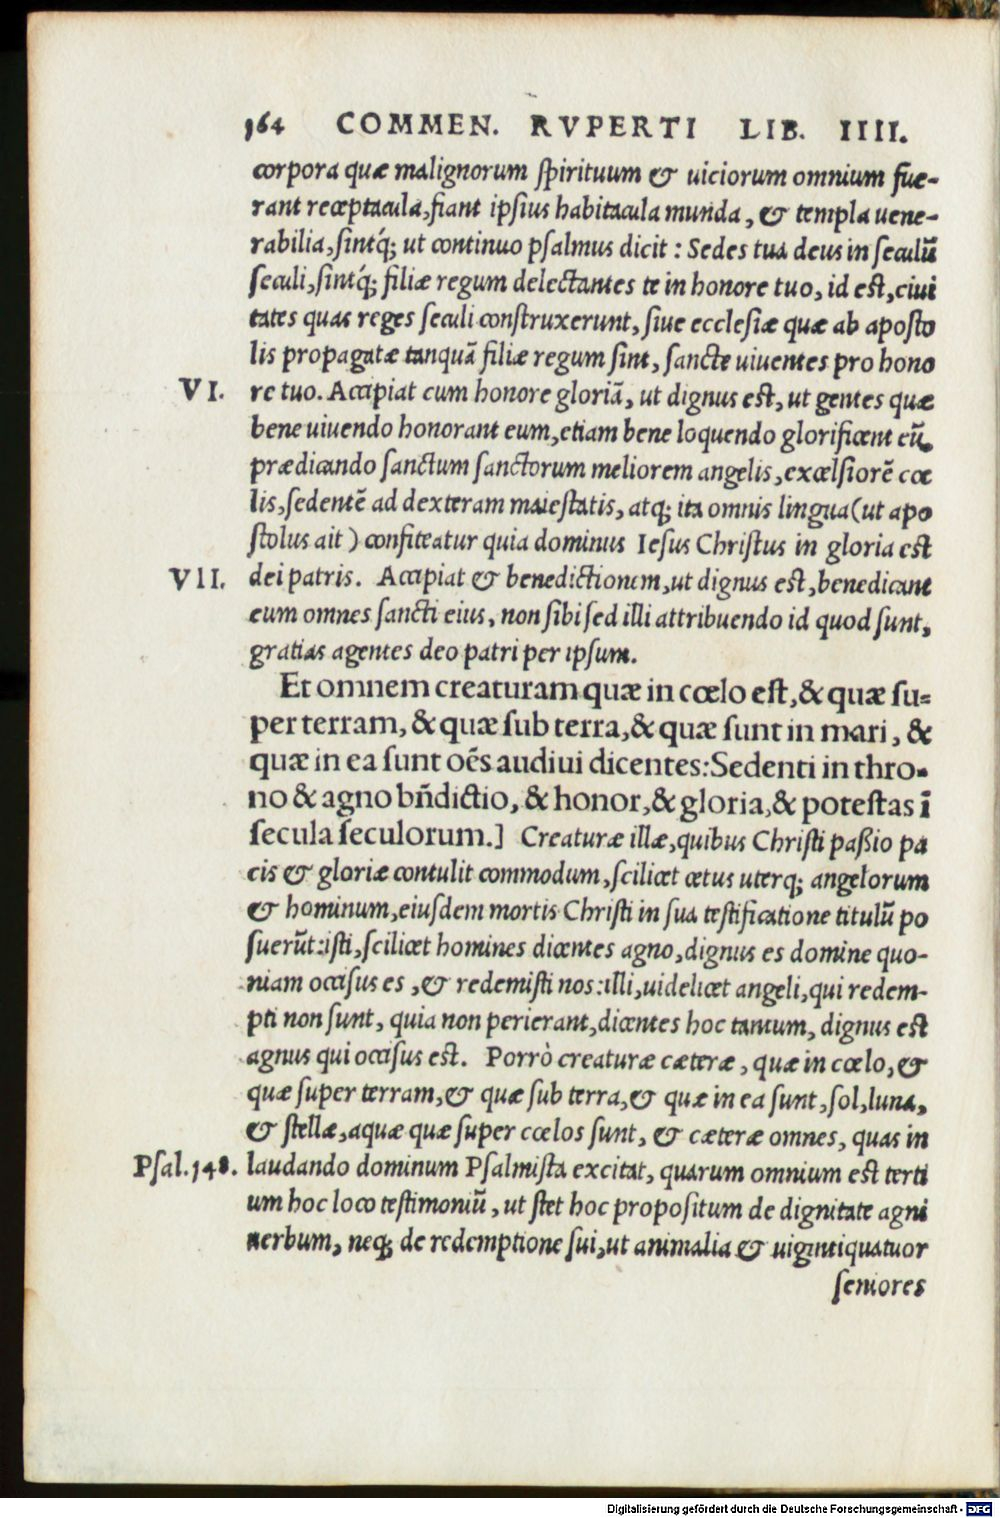 164 COMMEN. RVPERTI LIB. IIII.
corpora quæ malignorum spirituum & uiciorum omnium fue-
rant receptacula, fiant ipsius habitacula munda, & templa uene-
rabilia, sintq́; ut continuo psalmus dicit: Sedes tua deus in seculũ
seculi, sintq́; filiæ regum delectantes te in honore tuo, id est, ciui
tates quas reges seculi construxerunt, siue ecclesiæ quæ ab aposto
lis propagatæ tanquã filiæ regum sint, sancte uiuentes pro hono
VI. re tuo. Accipiat cum honore gloriã, ut dignus est, ut gentes quæ
bene uiuendo honorant eum, etiam bene loquendo glorificent eũ,
prædicando sanctum sanctorum meliorem angelis, excelsiorẽ cœ
lis, sedentẽ ad dexteram maiestatis, atq; ita omnis lingua (ut apo
stolus ait) confiteatur quia dominus Iesus Christus in gloria est
VII. dei patris. Accipiat & benedictionem, ut dignus est, benedicant
eum omnes sancti eius, non sibi sed illi attribuendo id quod sunt,
gratias agentes deo patri per ipsum.
Et omnem creaturam quæ in cœlo est, & quæ su=
per terram, & quæ sub terra, & quæ sunt in mari, &
quæ in ea sunt oẽs audiui dicentes: Sedenti in thro-
no & agno bñdictio, & honor, & gloria, & potestas ĩ
secula seculorum.] Creaturæ illæ, quibus Christi paßio pa
cis & gloriæ contulit commodum, scilicet cœtus uterq; angelorum
& hominum, eiusdem mortis Christi in sua testificatione titulũ po
suerũt: isti, scilicet homines dicentes agno, dignus es domine quo-
niam occisus es, & redemisti nos: illi, uidelicet angeli, qui redem-
pti non sunt, quia non perierant, dicentes hoc tantum, dignus est
agnus qui occisus est. Porrò creaturæ cæteræ, quæ in cœlo, &
quæ super terram, & quæ sub terra, & quæ in ea sunt, sol, luna,
& stellæ, aquæ quæ super cœlos sunt, & cæteræ omnes, quas in
Psal. 148. laudando dominum Psalmista excitat, quarum omnium est terti
um hoc loco testimoniũ, ut stet hoc propositum de dignitate agni
uerbum, neq; de redemptione sui, ut animalia & uigintiquatuor
seniores
Digitalisierung gefördert durch die Deutsche Forschungsgemeinschaft - DFG